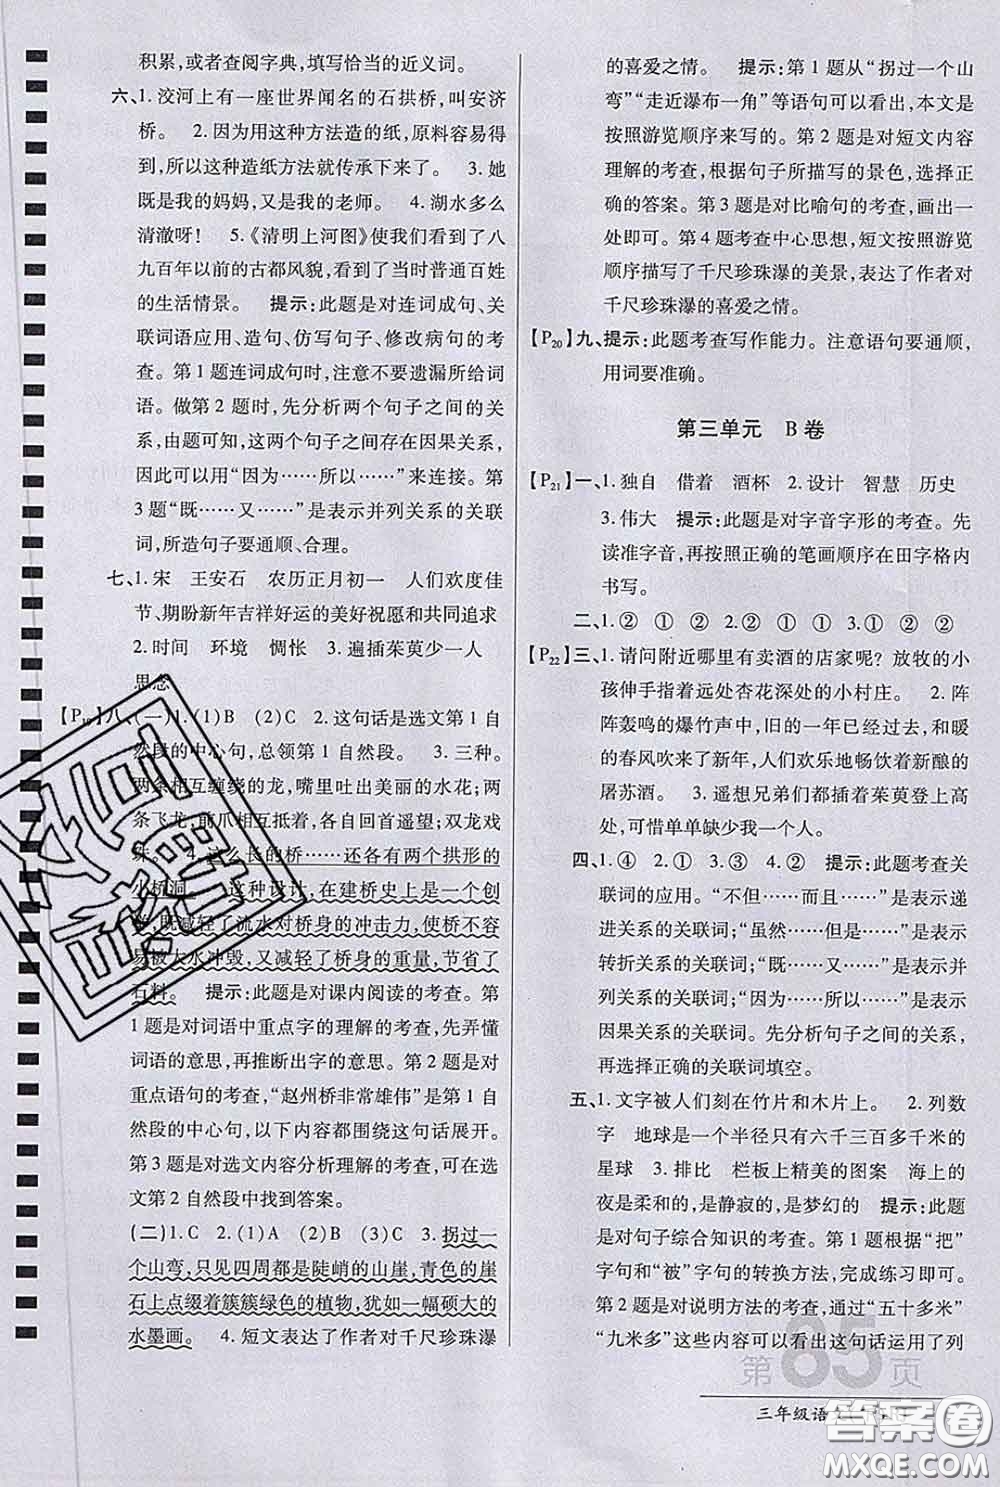 积累，或者查阅字典，填写恰当的近义词。
六、1.洨河上有一座世界闻名的石拱桥，叫安济
桥。 2.因为用这种方法造的纸，原料容易得
到，所以这种造纸方法就传承下来了。 3.她
既是我的妈妈，又是我的老师。 4.湖水多么
清澈呀！ 5.《清明上河图》使我们看到了八
九百年以前的古都风貌，看到了当时普通百姓
的生活情景。 提示：此题是对连词成句、关
联词语应用、造句、仿写句子、修改病句的考
查。第1题连词成句时，注意不要遗漏所给词
语。做第2题时，先分析两个句子之间的关
系，由题可知，这两个句子存在因果关系，
因此可以用“因为……所以……”来连接。第
3题“既……又……”是表示并列关系的关联
词，所造句子要通顺、合理。
七、1.宋 王安石 农历正月初一 人们欢度佳
节、期盼新年吉祥好运的美好祝愿和共同追求
2.时间 环境 惆怅 3.遍插茱萸少一人
思念
八、(一)1.(1)B (2)C 2.这句话是选文第1自
然段的中心句，总领第1自然段。 3.三种。
两条相互缠绕的龙，嘴里吐出美丽的水花；两
条飞龙，前爪相互抵着，各自回首遥望；双龙戏
珠。 4.这么长的桥……还各有两个拱形的
小桥洞。 这种设计，在建桥史上是一个创
举，既减轻了流水对桥身的冲击力，使桥不容
易被大水冲毁，又减轻了桥身的重量，节省了
石料。 提示：此题是对课内阅读的考查。第
1题是对词语中重点字的理解的考查，先弄懂
词语的意思，再推断出字的意思。第2题是对
重点语句的考查，“赵州桥非常雄伟”是第1自
然段的中心句，以下内容都围绕这句话展开。
第3题是对选文内容分析理解的考查，可在选
文第2自然段中找到答案。
(二)1.C 2.(1)A (2)B (3)C 3.拐过一
个山弯，只见四周都是陡峭的山崖，青色的崖
石上点缀着簇簇绿色的植物，犹如一幅硕大的
水墨画。 4.短文表达了作者对千尺珍珠瀑
的喜爱之情。 提示：第1题从“拐过一个山
弯”“走近瀑布一角”等语句可以看出，本文是
按照游览顺序来写的。第2题是对短文内容
理解的考查，根据句子所描写的景色，选择正
确的答案。第3题是对比喻句的考查，画出一
处即可。第4题考查中心思想，短文按照游览
顺序描写了千尺珍珠瀑的美景，表达了作者对
千尺珍珠瀑的喜爱之情。
【P20】九、提示：此题考查写作能力。注意语句要通顺，
用词要准确。
第三单元 B卷
【P21】一、1.独自 借着 酒杯 2.设计 智慧 历史
3.伟大 提示：此题是对字音字形的考查。先
读准字音，再按照正确的笔画顺序在田字格内
书写。
二、1.② ① ② 2.① ① 3.① ② ②
【P22】三、1.请问附近哪里有卖酒的店家呢？放牧的小
孩伸手指着远处杏花深处的小村庄。 2.阵
阵轰鸣的爆竹声中，旧的一年已经过去，和暖
的春风吹来了新年，人们欢乐地畅饮着新酿的
屠苏酒。 3.遥想兄弟们都插着茱萸登上高
处，可惜单单缺少我一个人。
四、1.④ 2.① 3.③ 4.② 提示：此题考查关
联词的应用。“不但……而且……”是表示递
进关系的关联词；“虽然……但是……”是表示
转折关系的关联词；“既……又……”是表示并
列关系的关联词；“因为……所以……”是表示
因果关系的关联词。先分析句子之间的关系，
再选择正确的关联词填空。
五、1.文字被人们刻在竹片和木片上。 2.列数
字 地球是一个半径只有六千三百多千米的
星球 3.排比 栏板上精美的图案 海上的
夜是柔和的，是静寂的，是梦幻的 提示：此题
是对句子综合知识的考查。第1题根据“把”
字句和“被”字句的转换方法，完成练习即可。
第2题是对说明方法的考查，通过“五十多米”
“九米多”这些内容可以看出这句话运用了列
第85页
三年级语文
答案卷
MXQE.COM